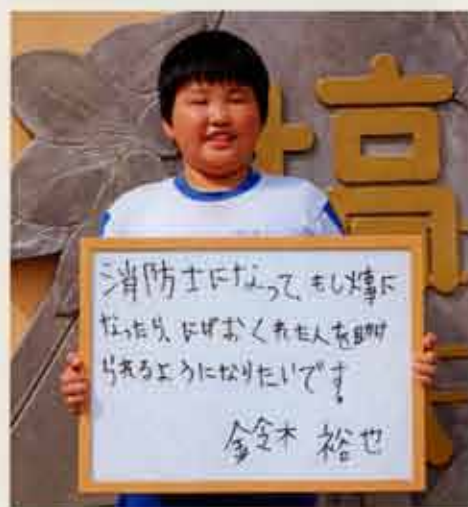 消防士になって、もし火事に
なったら、にげおくれた人を助け
られるようになりたいです。
鈴木 裕也
高